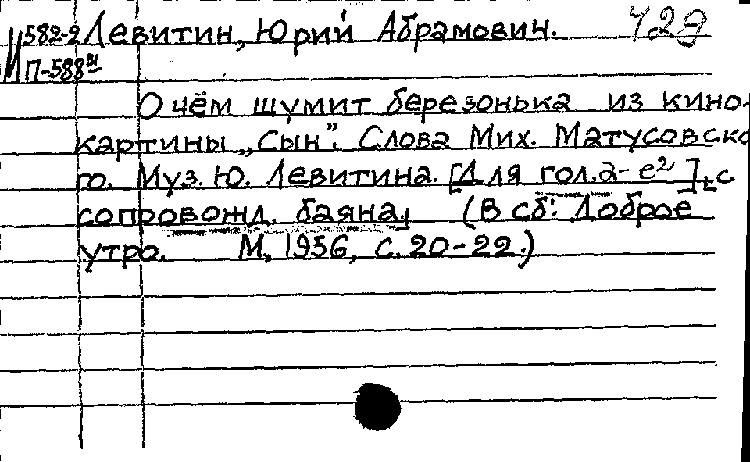 582-2 Левитин, Юрий Абрамович. 429
П-588
О чём шумит березонька из кино-
картины „Сын". Слова Мих. Матусовско
го. Муз. Ю. Левитина. [Для гол. a-e²], с
сопровожд. баяна, (В сб: Доброе
утро. М, 1956, с. 20-22.)